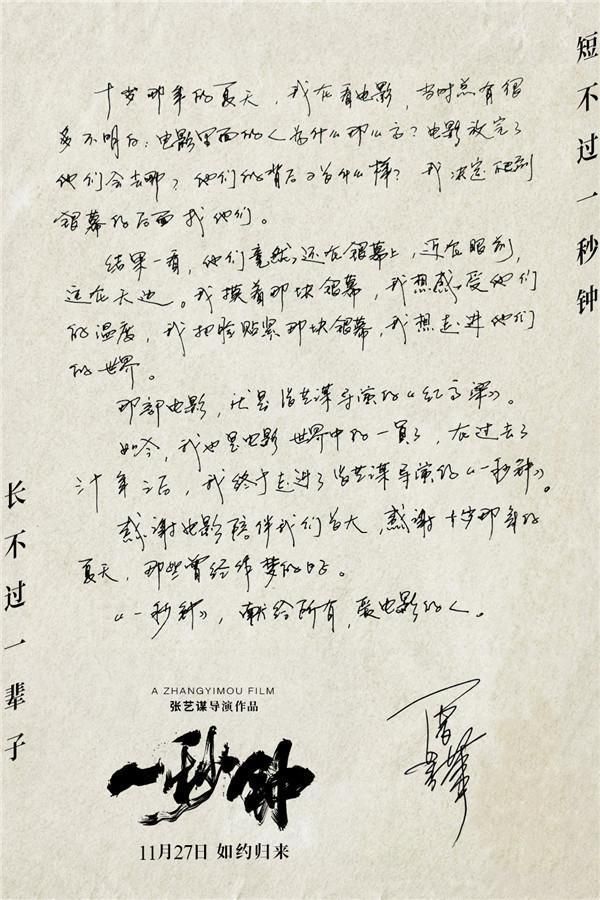 短不过一秒钟
十岁那年的夏天，我在看电影，当时总有很
多不明白：电影里面的人为什么那么高？电影放完了
他们会去哪？他们的背后又是什么样？我决定跑到
银幕的后面找他们。
结果一看，他们竟然还在银幕上，近在眼前，
远在天边。我摸着那块银幕，我想感受他们
的温度，我把脸贴紧那块银幕，我想走进他们
的世界。
那部电影，就是张艺谋导演的《红高粱》。
如今，我也是电影世界中的一员了，在过去了
卅年之后，我终于走进了张艺谋导演的《一秒钟》。
感谢电影陪伴我们长大，感谢十岁那年的
夏天，那些曾经作梦的日子。
《一秒钟》，献给所有爱电影的人。
长不过一辈子
A ZHANGYIMOU FILM
张艺谋导演作品
一秒钟
11月27日 如约归来